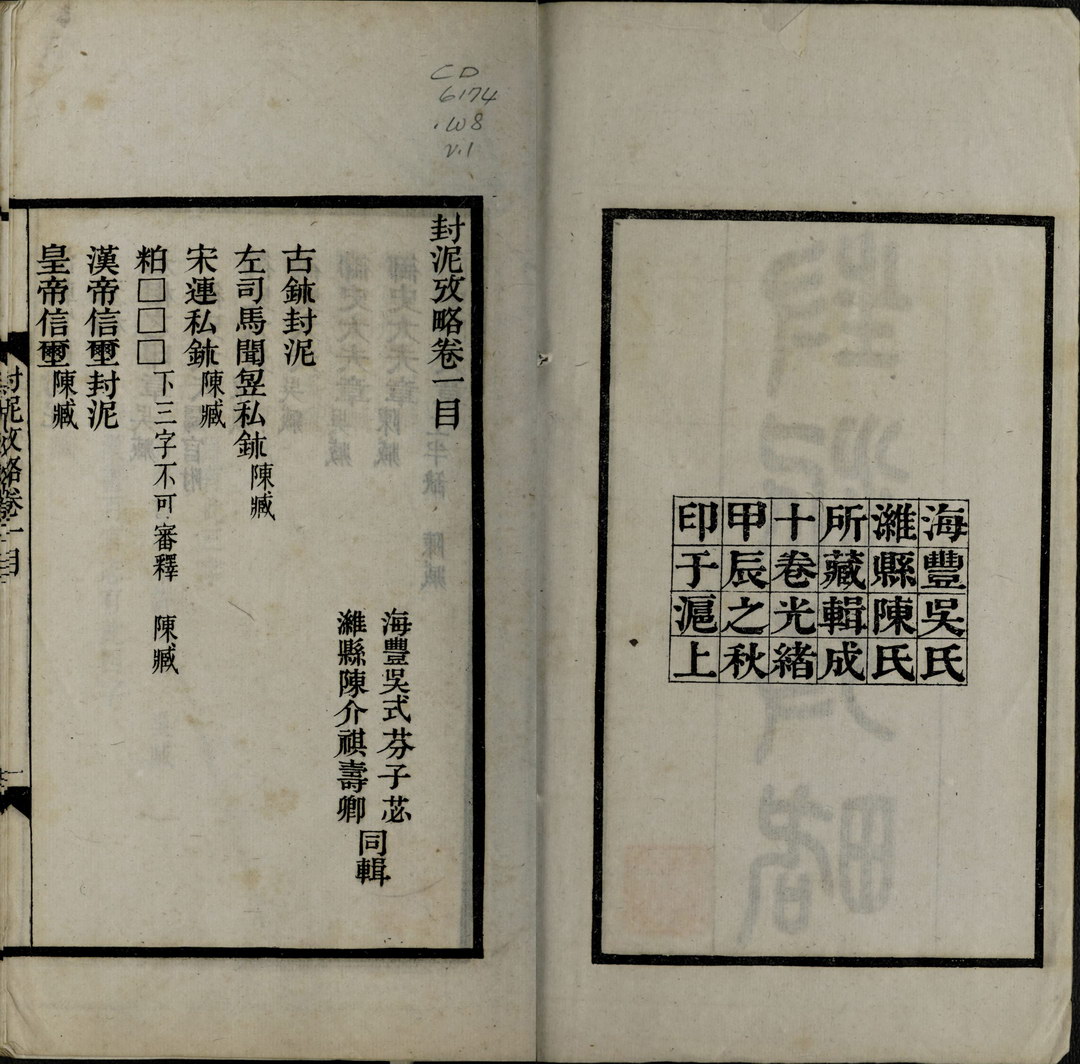 海豐吳氏
濰縣陳氏
所藏輯成
十卷光緒
甲辰之秋
印于滬上
CD
6174
.W8
v.1
封泥攷略卷一目
海豐吳式芬子苾
濰縣陳介祺壽卿
同輯
古鉨封泥
左司馬聞望私鉨 陳臧
宋連私鉨 陳臧
粕□□□ 下三字不可審釋 陳臧
漢帝信璽封泥
皇帝信璽 陳臧
封泥攷略卷一目
一